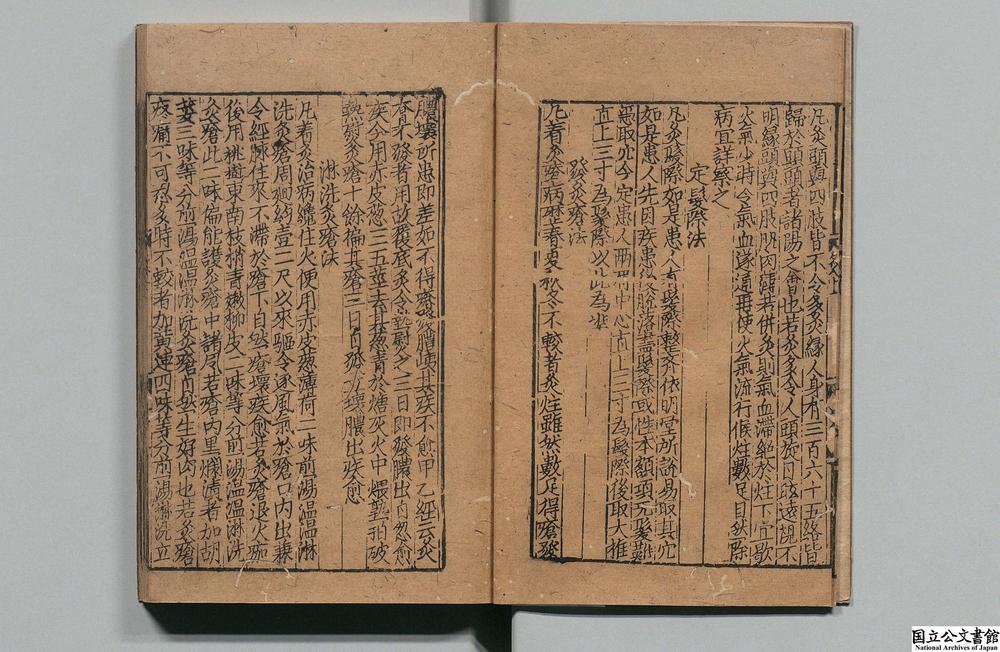 凡灸頭與四肢皆不令多灸緣人身有三百六十五絡皆
歸於頭頭者諸陽之會也若灸多令人頭旋目眩遠視不
明緣頭與四肢肌肉薄若併灸則氣血滯絕於炷下宜歇
火氣少時令氣血遂通再使火氣流行候炷數足自然除
病宜詳察之
定髮際法
凡灸髮際如是患人有髮際整齊依明堂所說易取其穴
如是患人先因疾患後脫落盡髮際或性本額頭兀髮難
取穴今定患人兩眉中心直上三寸為髮際後取大椎
直上三寸為髮際以此為準
發灸瘡法
凡着灸療病歷春夏秋冬不較者灸炷雖然數足得瘡發
膿壞所患即差如不得瘡發膿壞其疾不愈甲乙經云灸
瘡不發者用故履底灸令熱熨之三日即發膿出自然愈
疾今用赤皮葱三五莖去其葱青於煻灰火中煨熟拍破
熱熨灸瘡十餘徧其瘡三日自發立壞膿出疾愈
淋洗灸瘡法
凡着灸治病纔住火便用赤皮葱薄荷二味煎湯溫溫淋
洗灸瘡周迴約壹二尺以來驅令逐風氣於瘡口內出兼
令經脉往來不滯於瘡下自然瘡壞疾愈若灸瘡退火痂
後用桃樹東南枝梢青嫩柳皮二味等分煎湯溫溫淋洗
灸瘡此二味偏能護灸瘡中諸風若瘡內黑爛潰者加胡
荽三味等分煎湯溫溫淋洗灸瘡自然生好肉也若灸瘡
疼痛不可忍多時不較者加黃連四味等分煎湯淋洗立
国立公文書館
National Archives of Japan